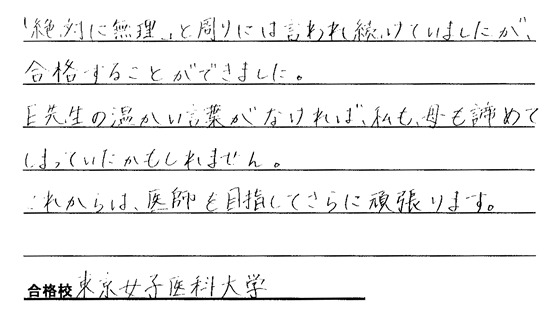 「絶対に無理。」と周りには言われ続けていましたが、
合格することができました。
E先生の温かい言葉がなければ、私も、母も諦めて
しまっていたかもしれません。
これからは、医師を目指してさらに頑張ります。
合格校 東京女子医科大学